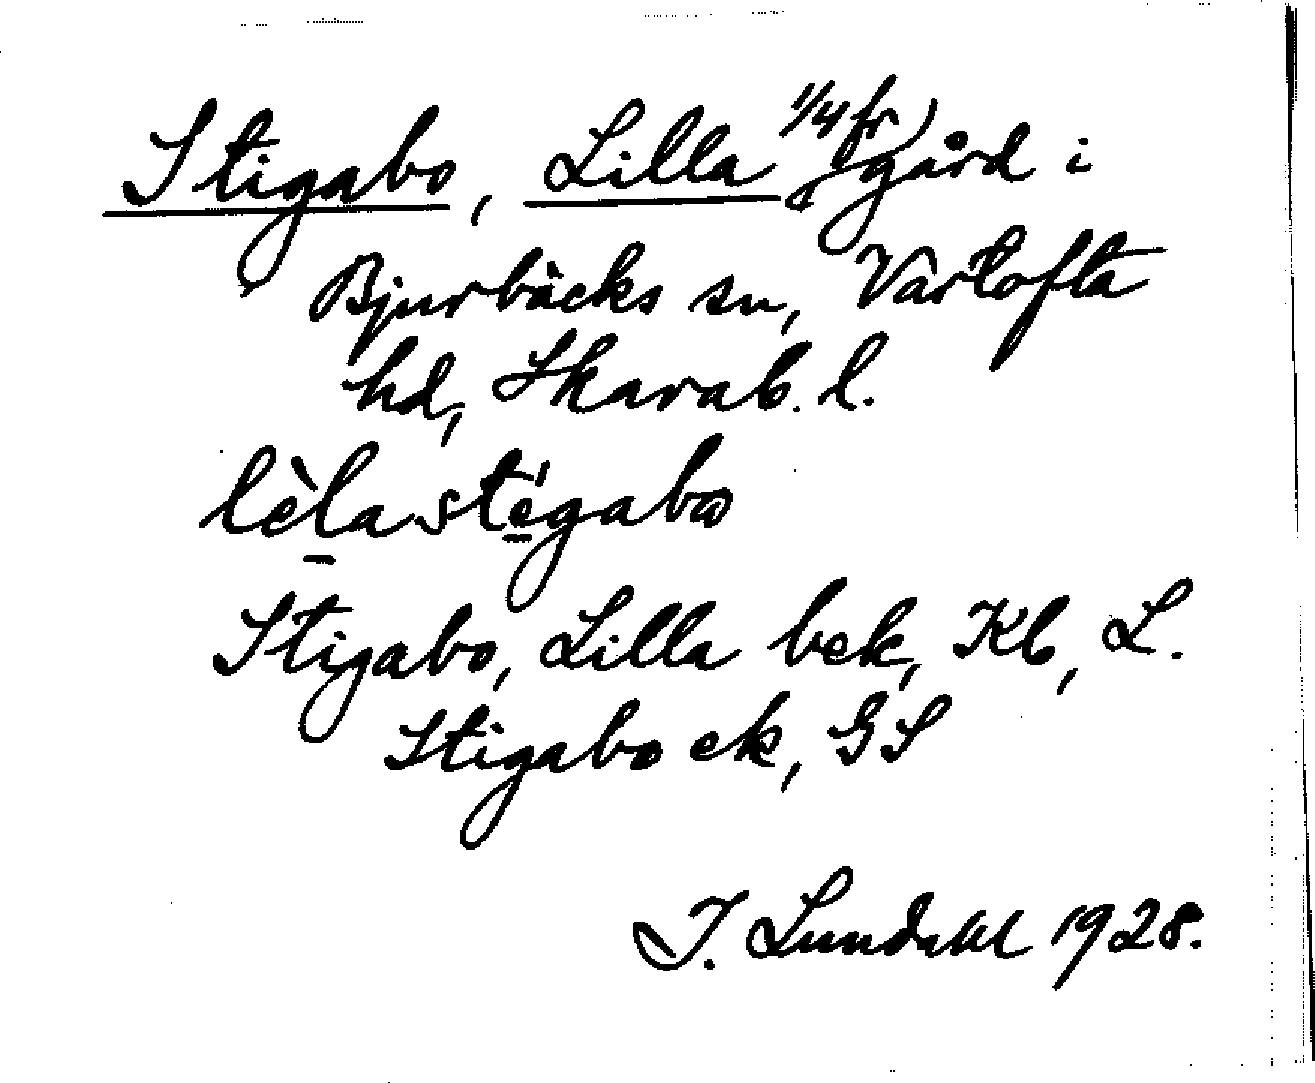 Stigabo, Lilla 1/4 fr gård i
Bjurbäcks sn, Vartofta
hd, Skarab. l.
lèla stégabω
Stigabo, Lilla bek, Kb, L.
Stigabo ek, GS
I. Lundahl 1928.